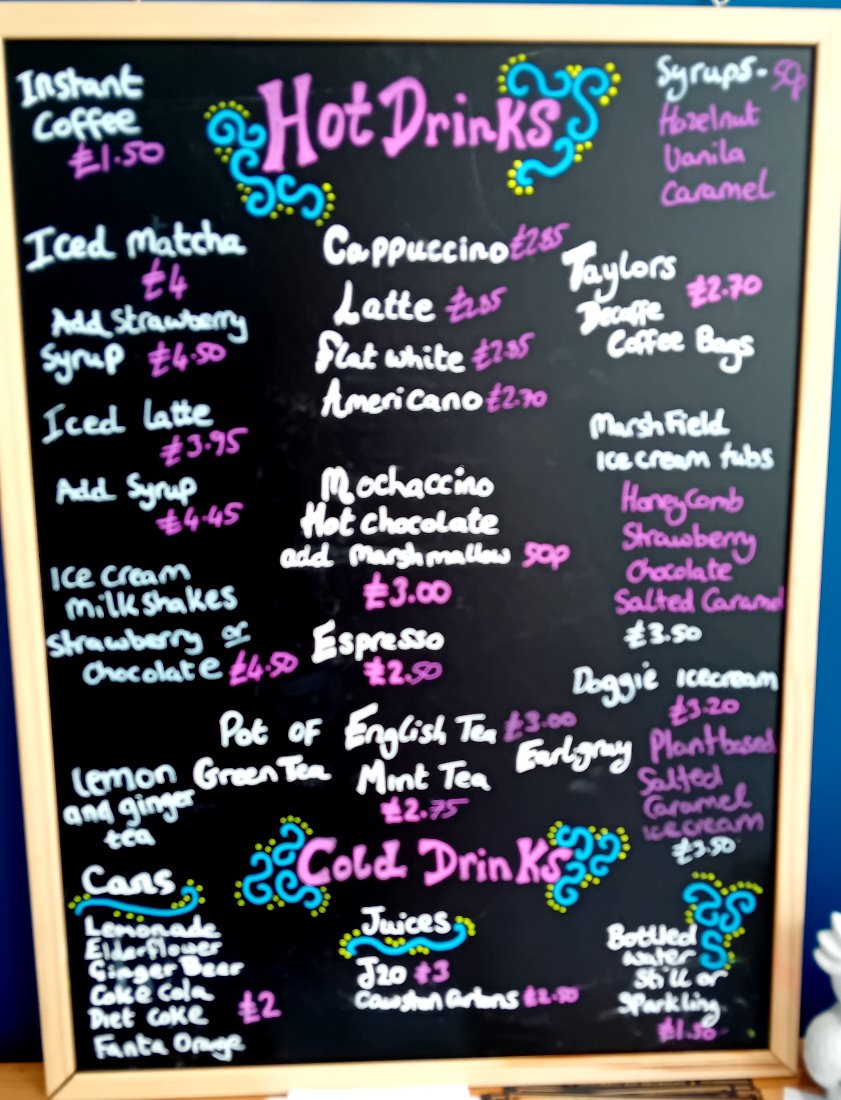 Hot Drinks
Instant
Coffee
£1.50
Syrups - 50p
Hazelnut
Vanila
Caramel
Iced Matcha
£4
Add Strawberry
Syrup £4.50
Iced latte
£3.95
Add Syrup
£4.45
Ice cream
milkshakes
Strawberry or
chocolate £4.50
Cappuccino £2.85
Latte £2.85
Flat white £2.85
Americano £2.70
Mochaccino
Hot chocolate
add marshmallow 50p
£3.00
Espresso
£2.50
Taylors
£2.70
Decaffe
Coffee Bags
Marshfield
ice cream tubs
Honeycomb
Strawberry
chocolate
Salted Caramel
£3.50
Doggie icecream
£3.20
Plantbased
Salted
Caramel
icecream
£3.50
Pot of English Tea £3.00
Earlgray
Lemon
and ginger
tea
Green Tea
Mint Tea
£2.75
Cold Drinks
Cans
Lemonade
Elderflower
Ginger Beer
Coke Cola
Diet coke £2
Fanta Orange
Juices
J20 £3
Cawston Cartons £2.50
Bottled
water
Still or
Sparkling
£1.50